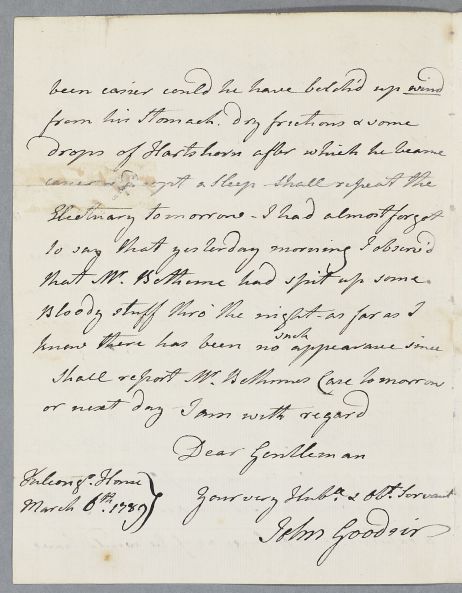 been easier could he have belch'd up wind
from his Stomach. dry frictions & some
drops of Hartshorn after which he became
easier & slept a sleep shall repeat the
Electuary tomorrow. I had almost forgot
to say that yesterday morning I observ'd
that Mr. Bethune had spit up some
Bloody stuff thro' the night as far as I
know there has been no such appearance since
Shall report Mr. Bethunes Case tomorrow
or next day I am with regard
Dear Gentleman
Your very Humb. & Obt. Servant
John Goodsir
House
March 6th. 1789